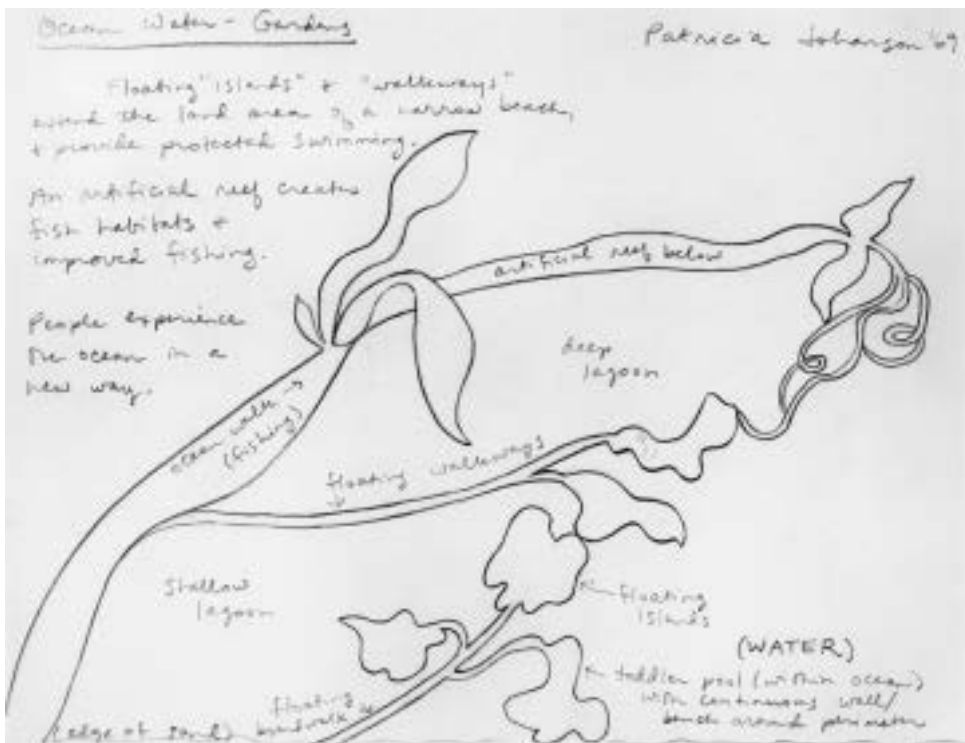 Ocean Water-Gardens
Patricia Johanson '69
Floating "islands" + "walkways"
extend the land area of a narrow beach,
+ provide protected swimming.
An artificial reef creates
fish habitats +
improved fishing.
People experience
the ocean in a
new way.
artificial reef below
deep
lagoon
ocean walk
(fishing)
floating walkways
shallow
lagoon
floating
islands
(WATER)
toddler pool (within ocean)
with continuous wall/
bench around perimeter
floating
boardwalk
(edge of sand)